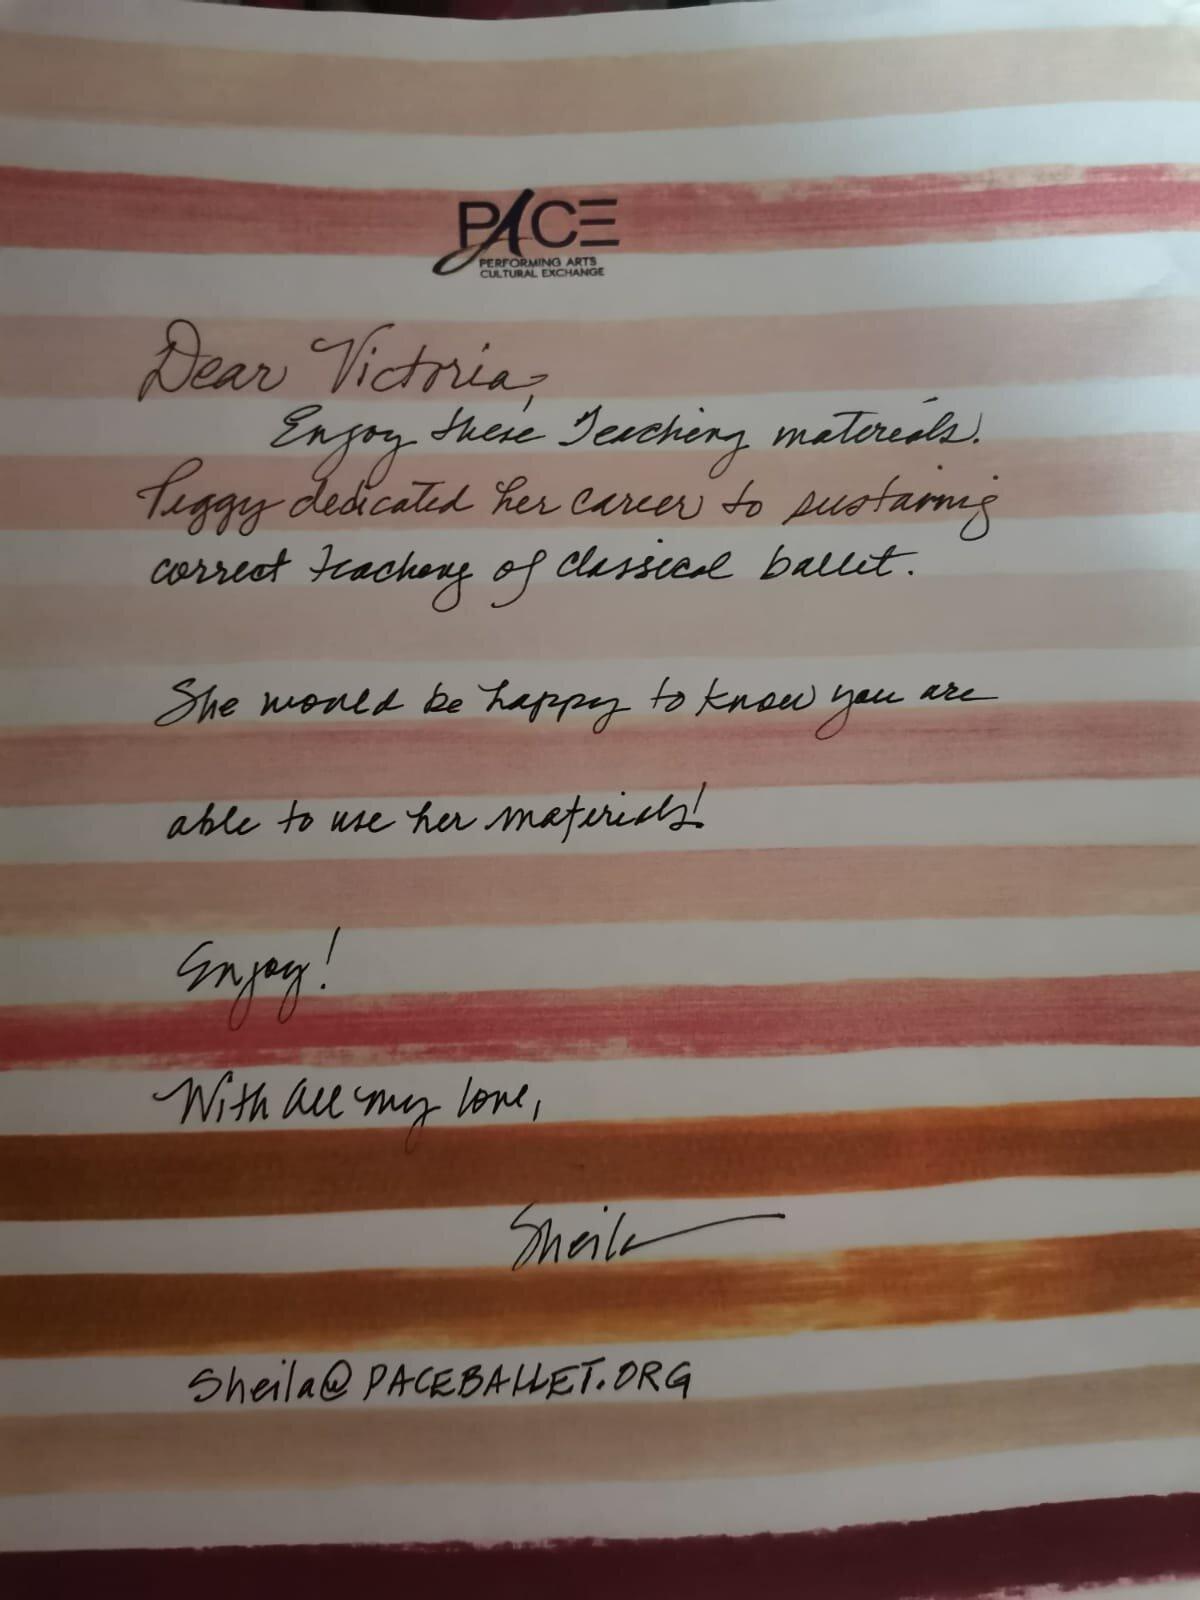 PACE
PERFORMING ARTS
CULTURAL EXCHANGE
Dear Victoria,
Enjoy these Teaching materials.
Peggy dedicated her career to sustaining
correct teaching of classical ballet.
She would be happy to know you are
able to use her materials!
Enjoy!
With all my love,
Sheila
Sheila@PACEBALLET.ORG